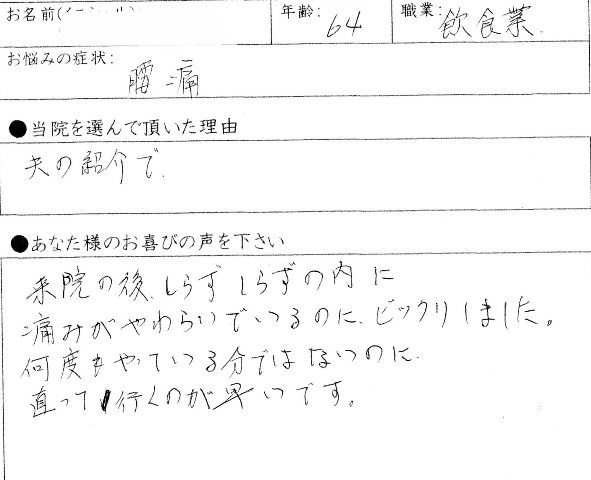 お名前(
年齢: 64
職業: 飲食業.
お悩みの症状:
腰痛
●当院を選んで頂いた理由
夫の紹介で.
●あなた様のお喜びの声を下さい
来院の後、しらずしらずの内に
痛みがやわらいでいるのに、ビックリしました。
何度もやっている分ではないのに
直って行くのが早いです。